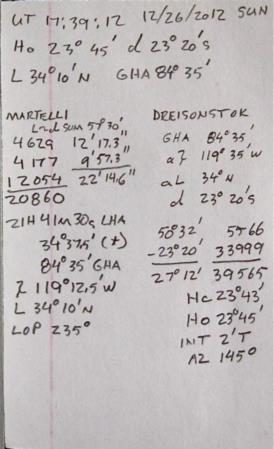 UT 17:39:12 12/26/2012 SUN
Ho 23° 45' d 23° 20's
L 34° 10'N GHA 84° 35'
MARTELLI
L and SUM 57° 30'
4629 12' 17.3"
4177 9' 57.3"
12054 22' 14.6"
20860
21H 41m 30s LHA
34° 37.5' (+)
84° 35' GHA
λ 119° 12.5'W
L 34° 10'N
LOP 235°
DREISONSTOK
GHA 84° 35'
aλ 119° 35'W
aL 34°N
d 23° 20's
50° 32' 5566
-23° 20' 33999
27° 12' 39565
Hc 23° 43'
Ho 23° 45'
INT 2'T
AZ 145°